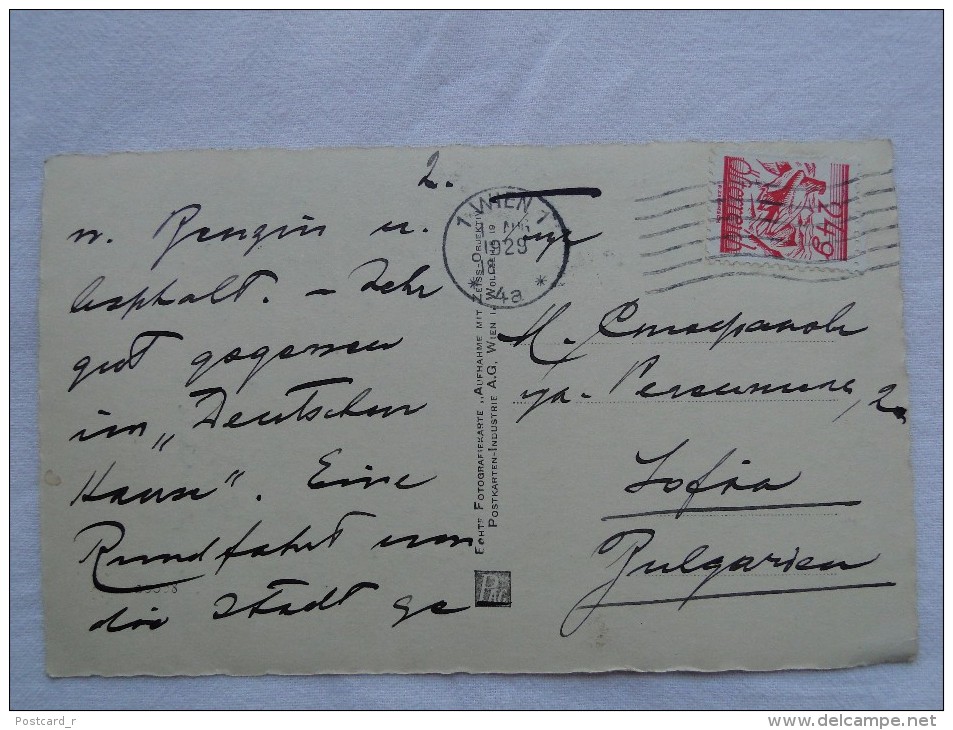 2.
n. Benzin u.
Asphalt. – Sehr
gut gegessen
im „Deutschen
Hause“. Eine
Rundfahrt um
die Stadt ge
1 WIEN 1
1929
* 4a *
Österreich
24g
ECHTE FOTOGRAFIEKARTE „AUFNAHME MIT ZEISS-OBJEKTIV
POSTKARTEN-INDUSTRIE A.G., WIEN I., WOLLZEILE 19
ул.
Sofia
Bulgarien
Postcard_r
www.delcampe.net